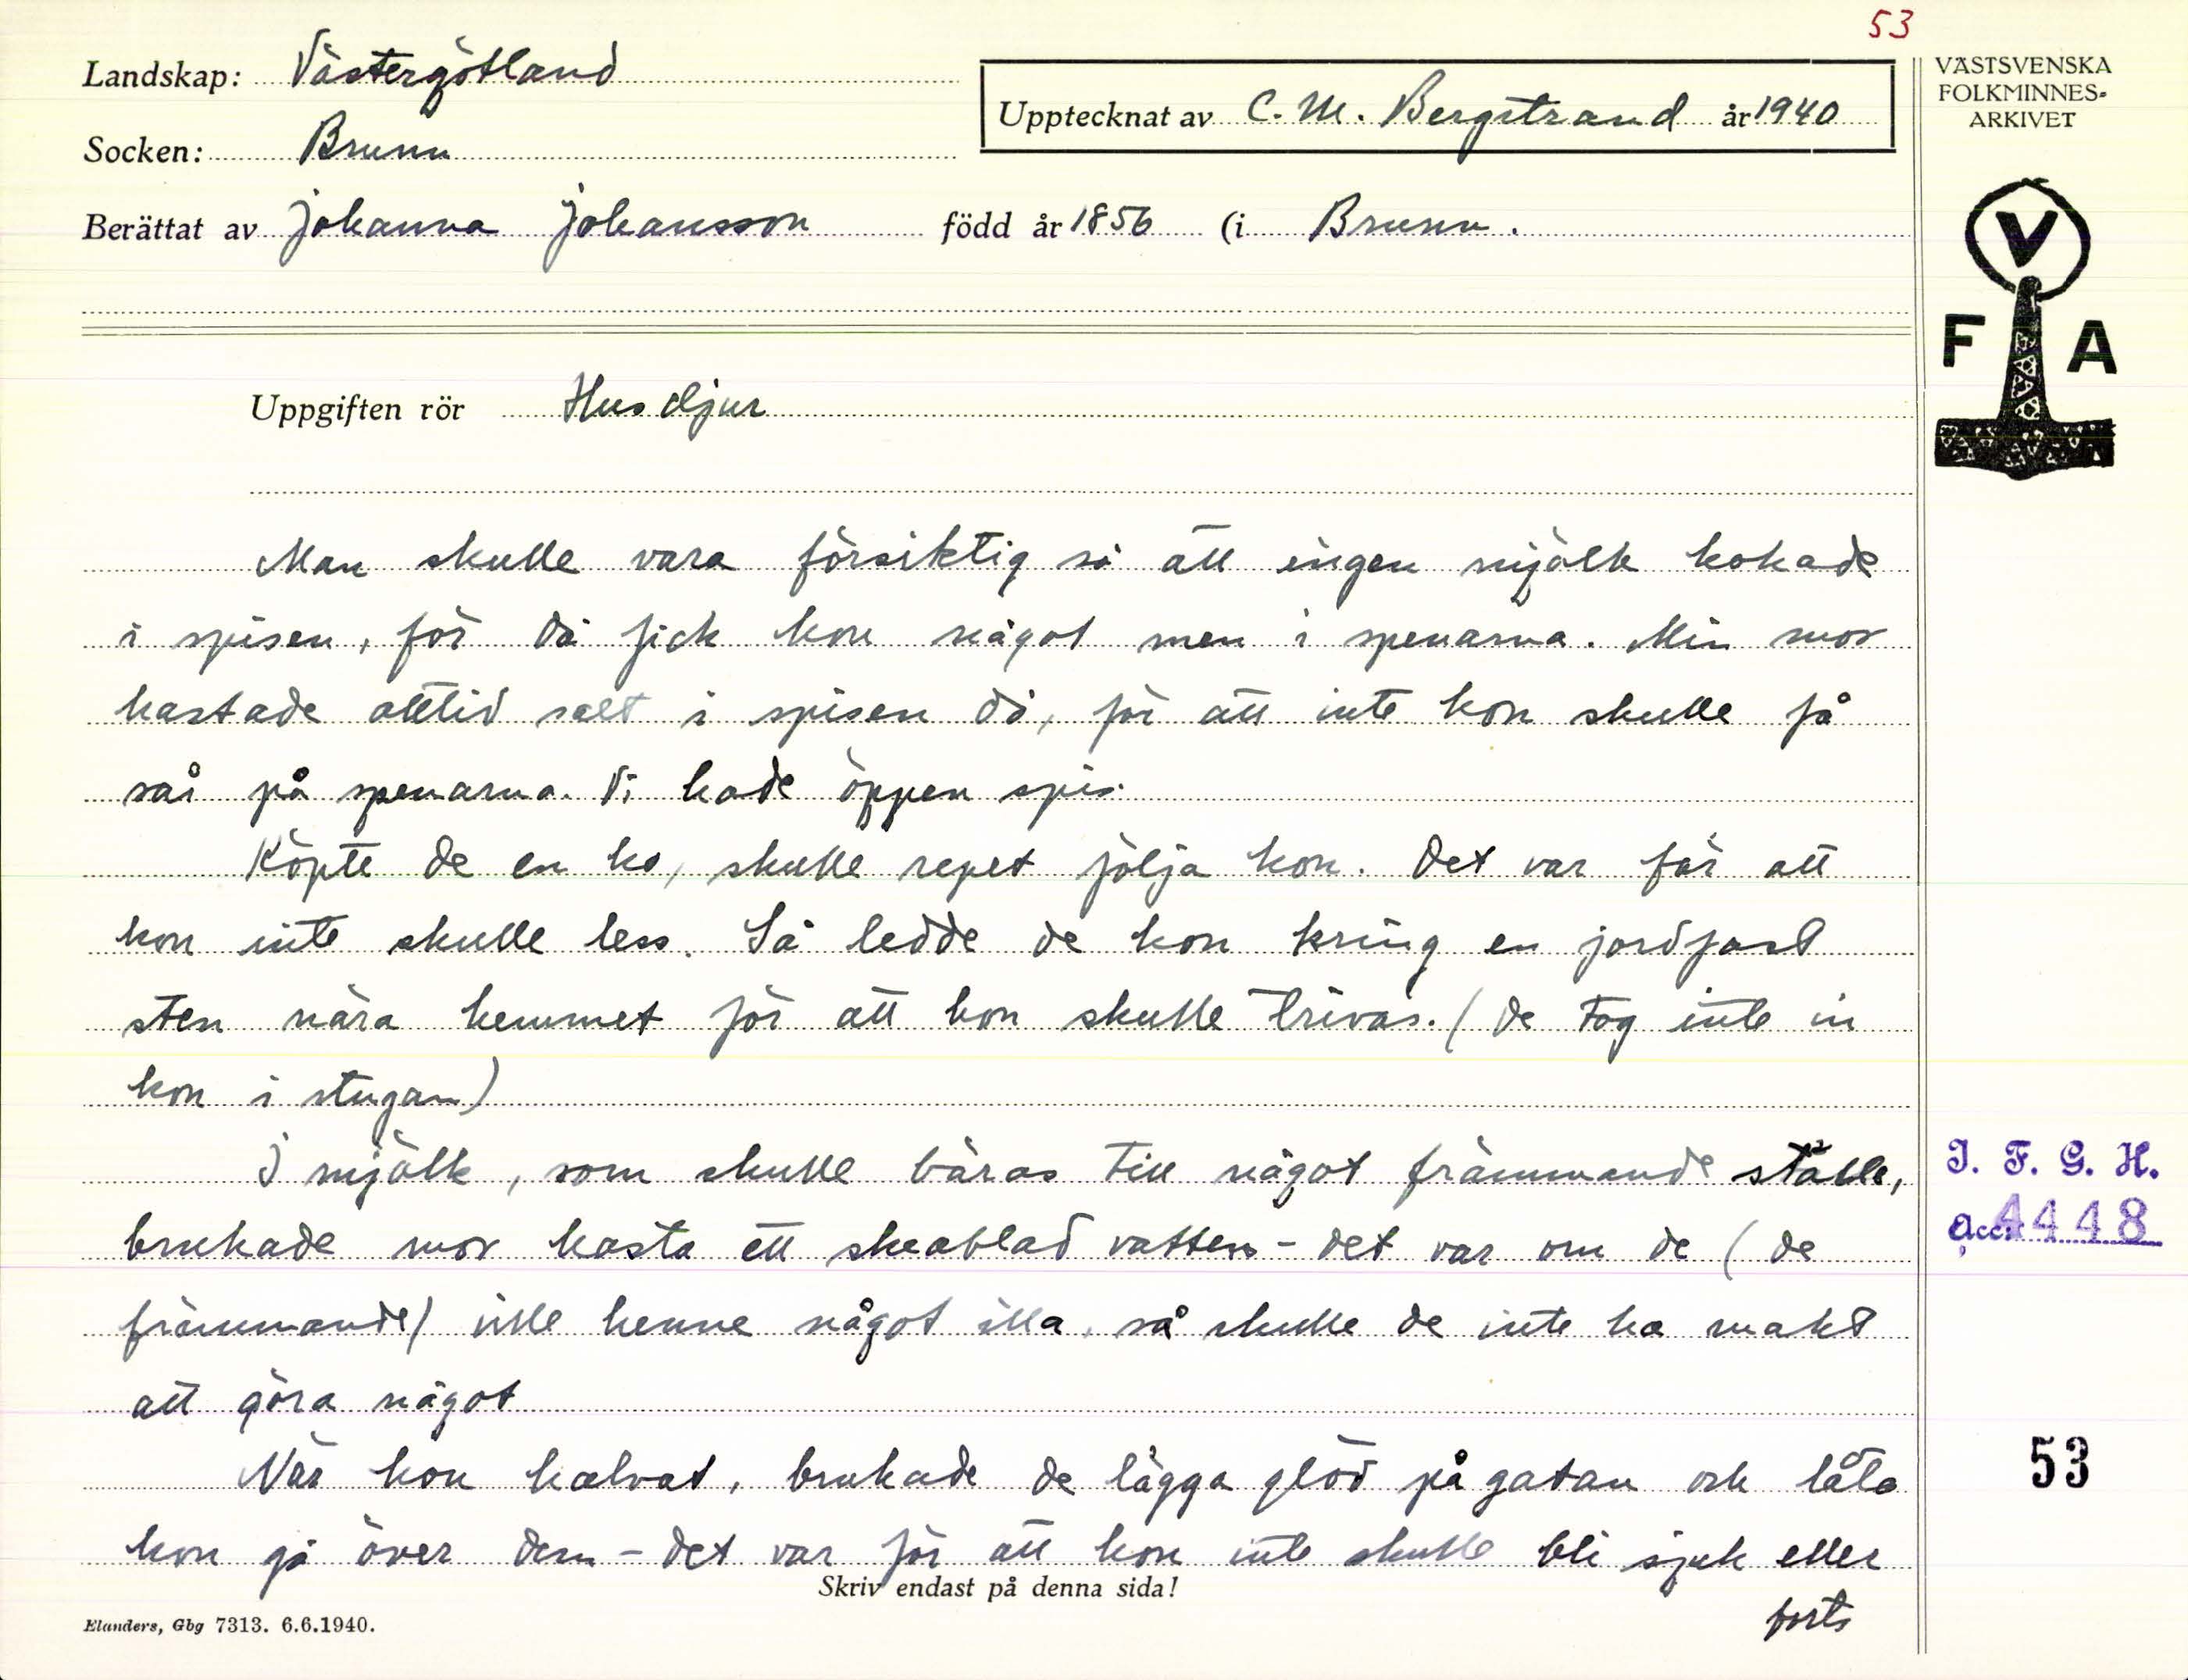 53
Landskap: Västergötland
Upptecknat av C. M. Bergstrand år 1940
VÄSTSVENSKA
FOLKMINNES-
ARKIVET
Socken: Brunn
Berättat av Johanna Johansson född år 1856 (i Brunn.
V
F A
Uppgiften rör Husdjur
Man skulle vara försiktig så att ingen mjölk kokade
i spisen, för då fick kon något men i spenarna. Min mor
kastade alltid salt i spisen då, för att inte kon skulle få
sår på spenarna. Vi hade öppen spis.
Köpte de en ko, skulle repet följa kon. Det var för att
kon inte skulle less. Så ledde de kon kring en jordfast
sten nära hemmet för att hon skulle trivas. (De tog inte in
kon i stugan)
I mjölk, som skulle bäras till något främmande ställe,
brukade mor kasta ett skeablad vatten - det var om de (de
främmande) ville henne något illa, så skulle de inte ha makt
att göra något
När kon kalvat, brukade de lägga glöd på gatan och låta
kon gå över dem - det var för att kon inte skulle bli sjuk eller
forts
I. F. G. H.
Acc. 4448
53
Skriv endast på denna sida!
Elanders, Gbg 7313. 6.6.1940.